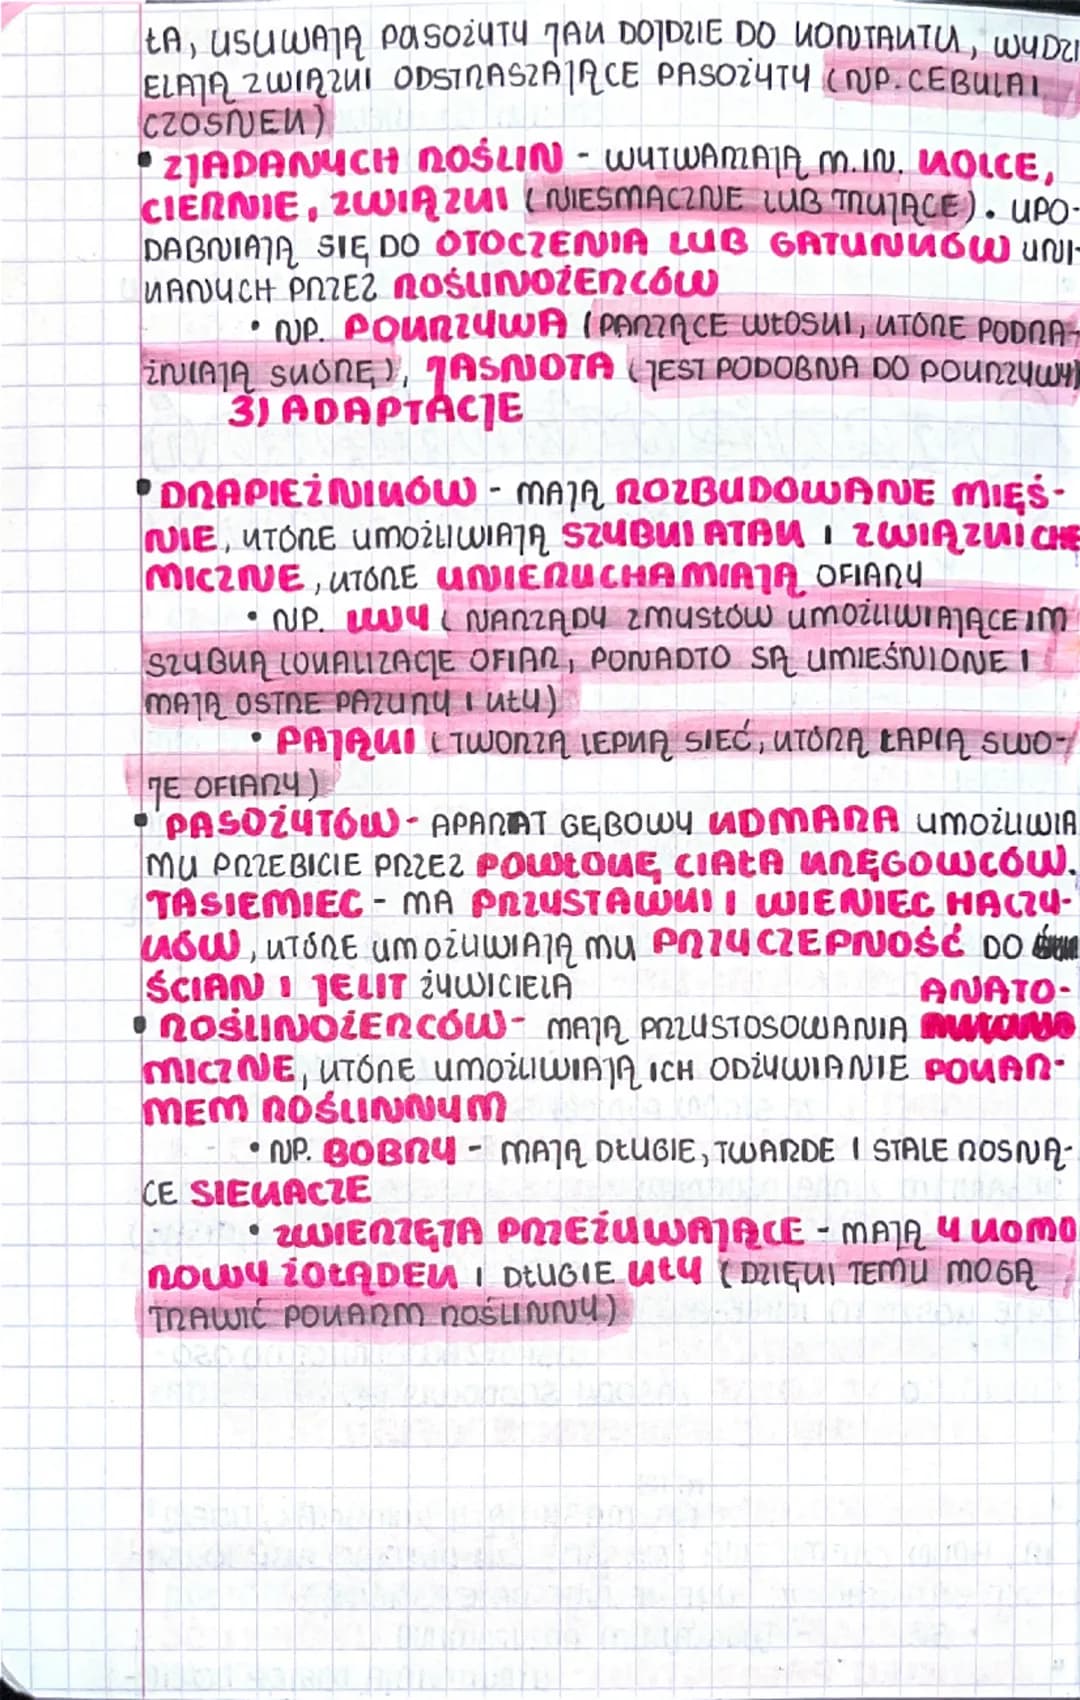 ŁA, USUWAJĄ PASOŻYTY JAK DOJDZIE DO KONTAKTU, WYDZI
ELAJĄ ZWIĄZKI ODSTRASZAJĄCE PASOŻYTY (NP. CEBULA I
CZOSNEK)
• ZJADANYCH ROŚLIN - WYTWARZAJĄ M.IN. KOLCE,
CIERNIE, ZWIĄZKI (NIESMACZNE LUB TRUJĄCE). UPO-
DABNIAJĄ SIĘ DO OTOCZENIA LUB GATUNKÓW UNI-
KANYCH PRZEZ ROŚLINOŻERCÓW
• NP. POKRZYWA (PARZĄCE WŁOSKI, KTÓRE PODRA-
ŻNIAJĄ SKÓRĘ), JASNOTA (JEST PODOBNA DO POKRZYWY)
3) ADAPTACJE
• DRAPIEŻNIKÓW - MAJĄ ROZBUDOWANE MIĘŚ-
NIE, KTÓRE UMOŻLIWIAJĄ SZYBKI ATAK I ZWIĄZKI CHE
MICZNE, KTÓRE UNIERUCHAMIAJĄ OFIARY
• NP. LWY (NARZĄDY ZMYSŁÓW UMOŻLIWIAJĄCE IM
SZYBKĄ LOKALIZACJE OFIAR, PONADTO SĄ UMIEŚNIONE I
MAJĄ OSTRE PAZURY I KŁY)
• PAJĄKI (TWORZĄ LEPKĄ SIEĆ, KTÓRĄ ŁAPIĄ SWO-
JE OFIARY)
• PASOŻYTÓW - APARAT GĘBOWY KOMARA UMOŻLIWIA
MU PRZEBICIE PRZEZ POWŁOKĘ CIAŁA KRĘGOWCÓW.
TASIEMIEC - MA PRZYSTAWKI I WIENIEC HACZY-
KÓW, KTÓRE UMOŻLIWIAJĄ MU PRZYCZEPNOŚĆ DO
ŚCIAN I JELIT ŻYWICIELA
ANATO-
• ROŚLINOŻERCÓW - MAJĄ PRZYSTOSOWANIA
MICZNE, KTÓRE UMOŻLIWIAJĄ ICH ODŻYWIANIE POKAR-
MEM ROŚLINNYM
• NP. BOBRY - MAJĄ DŁUGIE, TWARDE I STALE ROSNĄ-
CE SIEKACZE
• ZWIERZĘTA PRZEŻUWAJĄCE - MAJĄ 4 KOMO
ROWY ŻOŁĄDEK I DŁUGIE KŁY (DZIĘKI TEMU MOGĄ
TRAWIĆ POKARM ROŚLINNY)